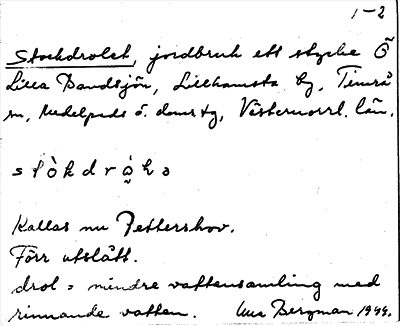 1-2
Stockdrolet, jordbruk ett stycke Ö
Lilla Bandsjön, Lillhamsta by, Timrå
sn, Medelpads ö. doms tg, Västernorrl. län.
Kallas nu Pettershov.
Förr utslått.
drol = mindre vattensamling med
rinnande vatten. Bergman 1949.